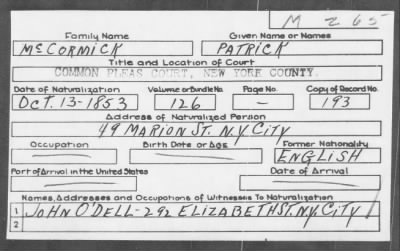 M 265
Family Name Given Name or Names
McCORMICK PATRICK
Title and Location of Court
COMMON PLEAS COURT, NEW YORK COUNTY.
Date of Naturalization Volume or Bundle No. Page No. Copy of Record No.
OCT. 13-1853 126 — 193
Address of Naturalized Person
49 MARION ST. N.Y. CITY
Occupation Birth Date or Age Former Nationality
— — ENGLISH
Port of Arrival in the United States Date of Arrival
— —
Names, Addresses and Occupations of Witnesses To Naturalization
1 JOHN O'DELL - 292 ELIZABETH ST. N.Y. CITY
2